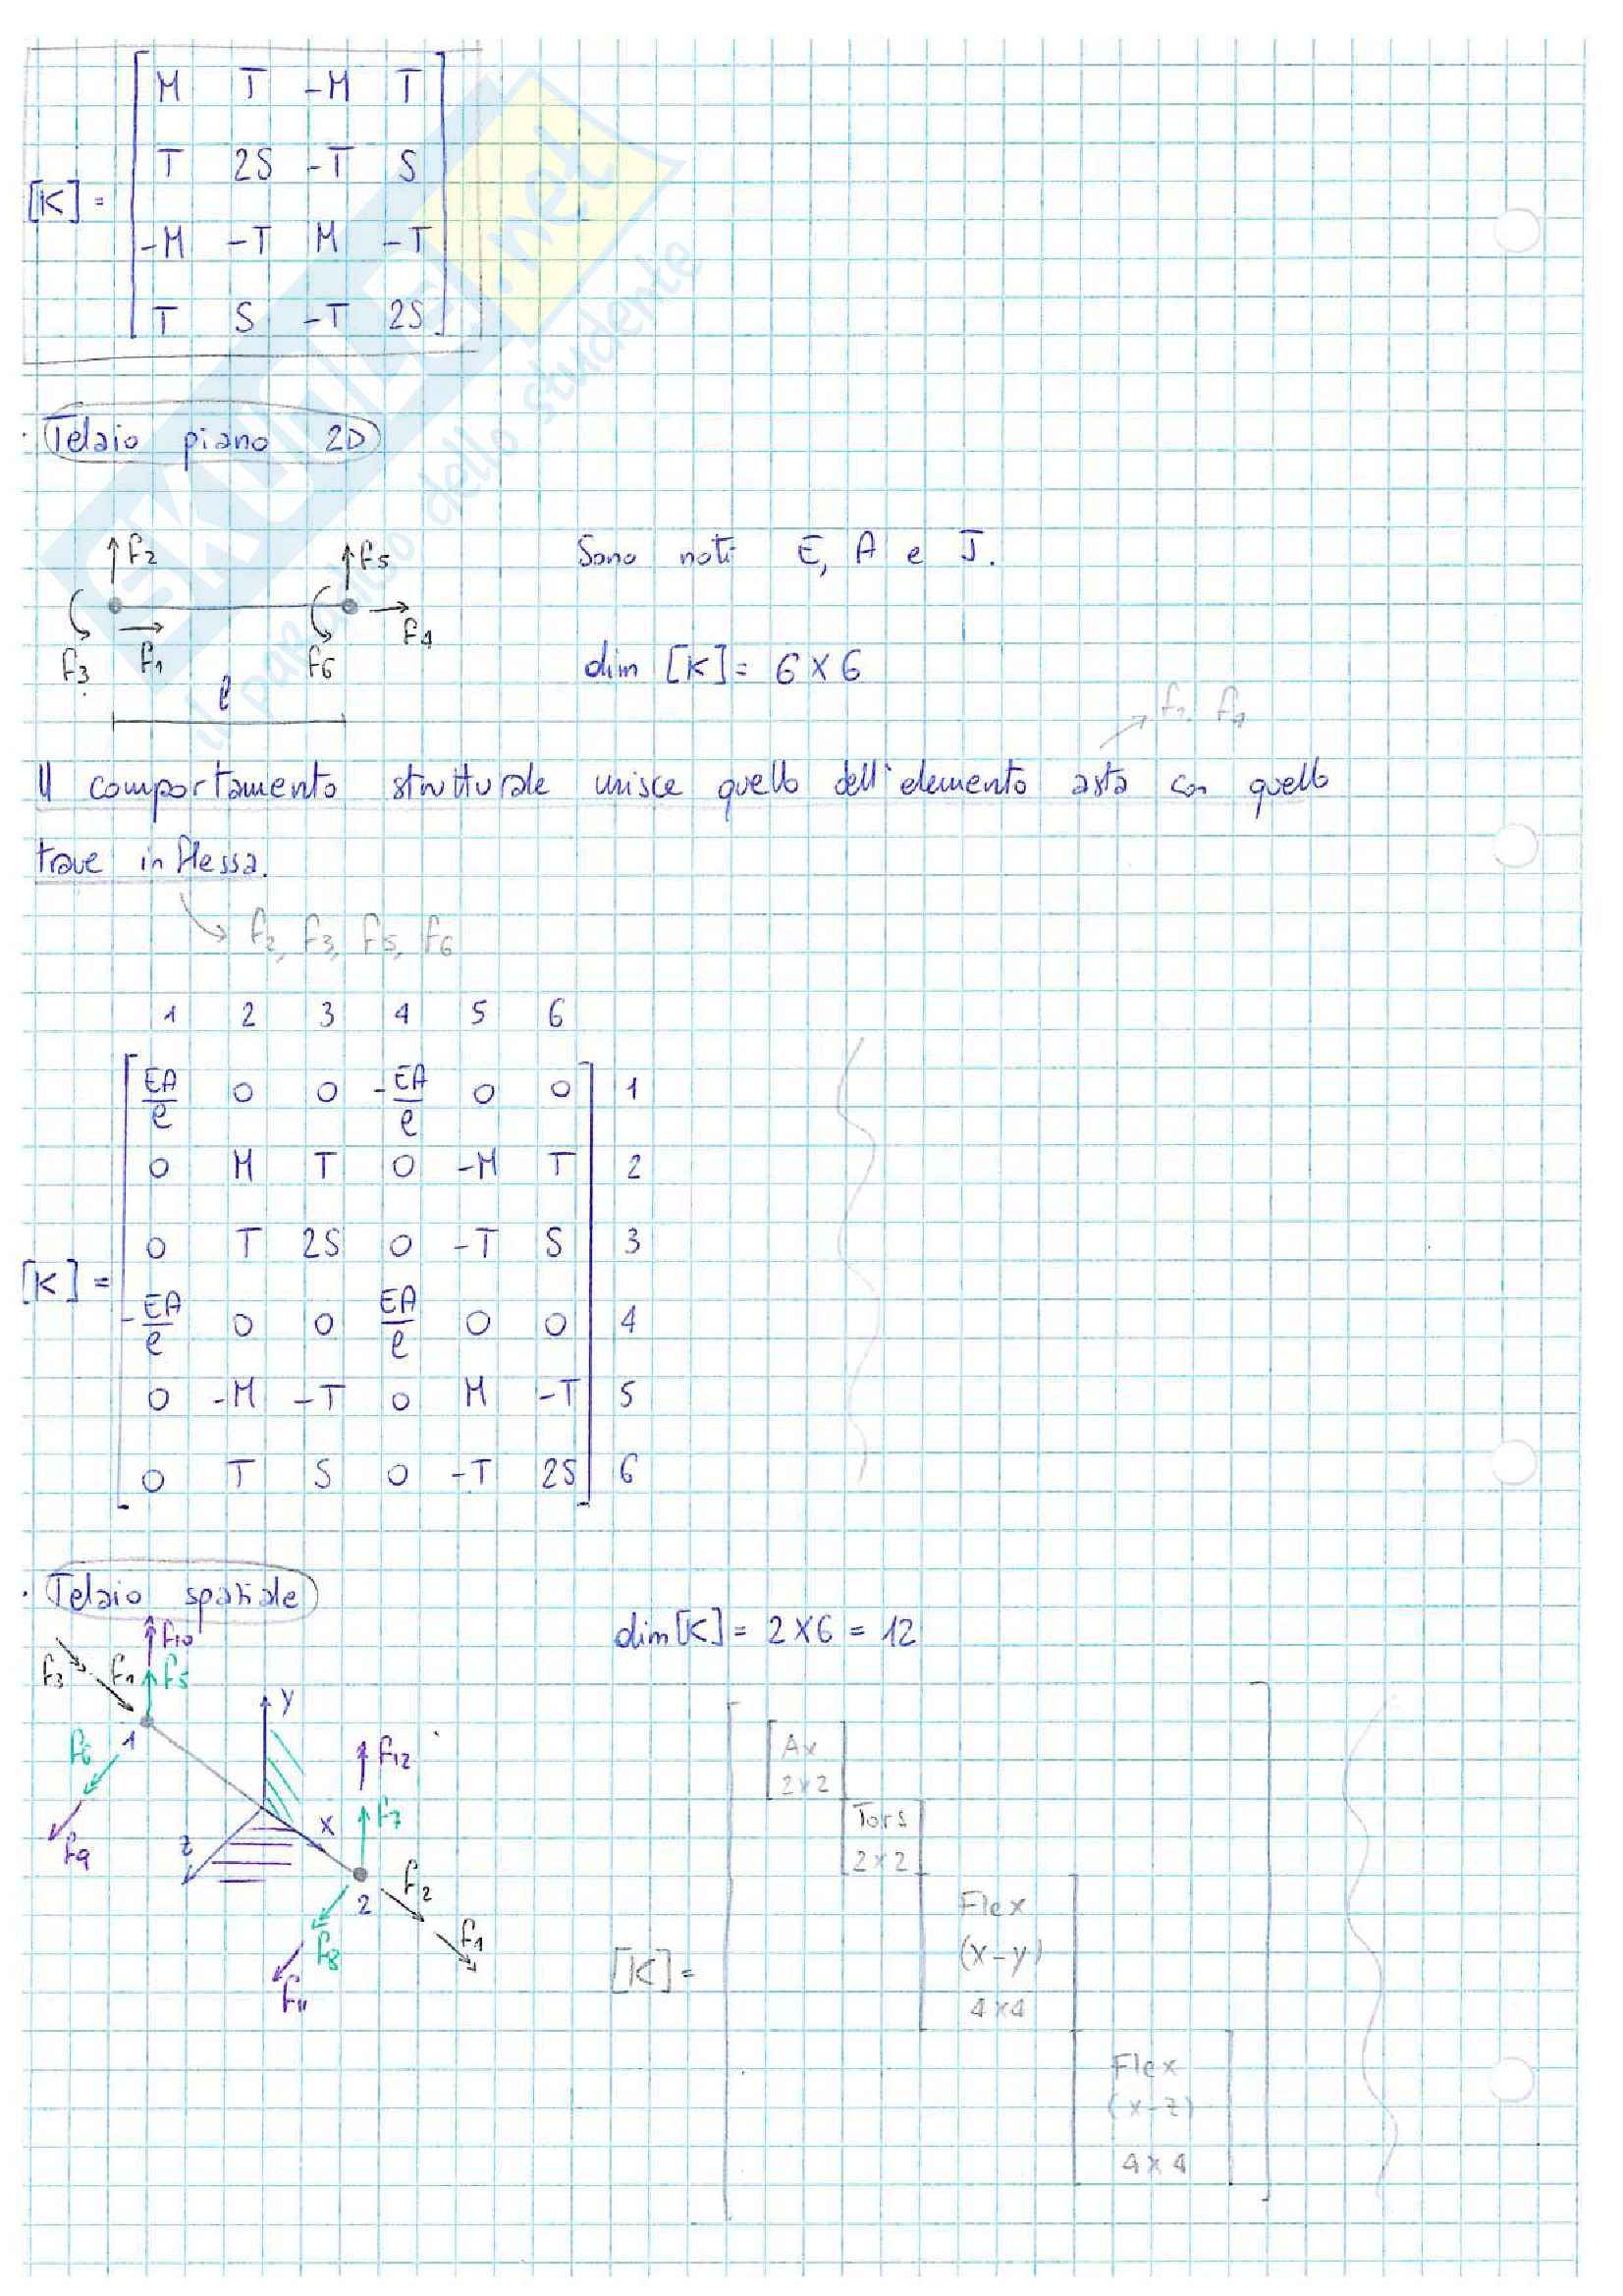 M T -M T
T 2S -T S
[K] =
-M -T M -T
T S -T 2S
SKUOLA.net
il paradiso dello studente
· Telaio piano 2D
f2 f5
Sono noti E, A e J.
f3 f1 f6 f4
dim [K] = 6 x 6
l
f1, f4
Il comportamento strutturale unisce quello dell'elemento asta con quello
trave inflessa.
f2, f3, f5, f6
1 2 3 4 5 6
EA/l 0 0 -EA/l 0 0 1
0 M T 0 -M T 2
0 T 2S 0 -T S 3
[K] =
-EA/l 0 0 EA/l 0 0 4
0 -M -T 0 M -T 5
0 T S 0 -T 2S 6
· Telaio spaziale
dim [K] = 2 x 6 = 12
f10
f3 f1 f5
1
y
f6
f12
f9
z
x
f7
2
f2
f8
f11
f4
[K] =
Ax
2x2
Tors
2x2
Flex
(x-y)
4x4
Flex
(x-z)
4x4